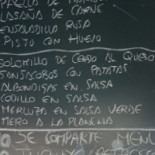 DE CARNE
ENSALADILLA RUSA
PISTO CON HUEVO
SOLOMILLO DE CERDO AL QUESO
CON PATATAS
ALBONDIGAS EN SALSA
CODILLO EN SALSA
MERLUZA EN SALSA VERDE
MERO A LA PLANCHA
SE COMPARTE MENU